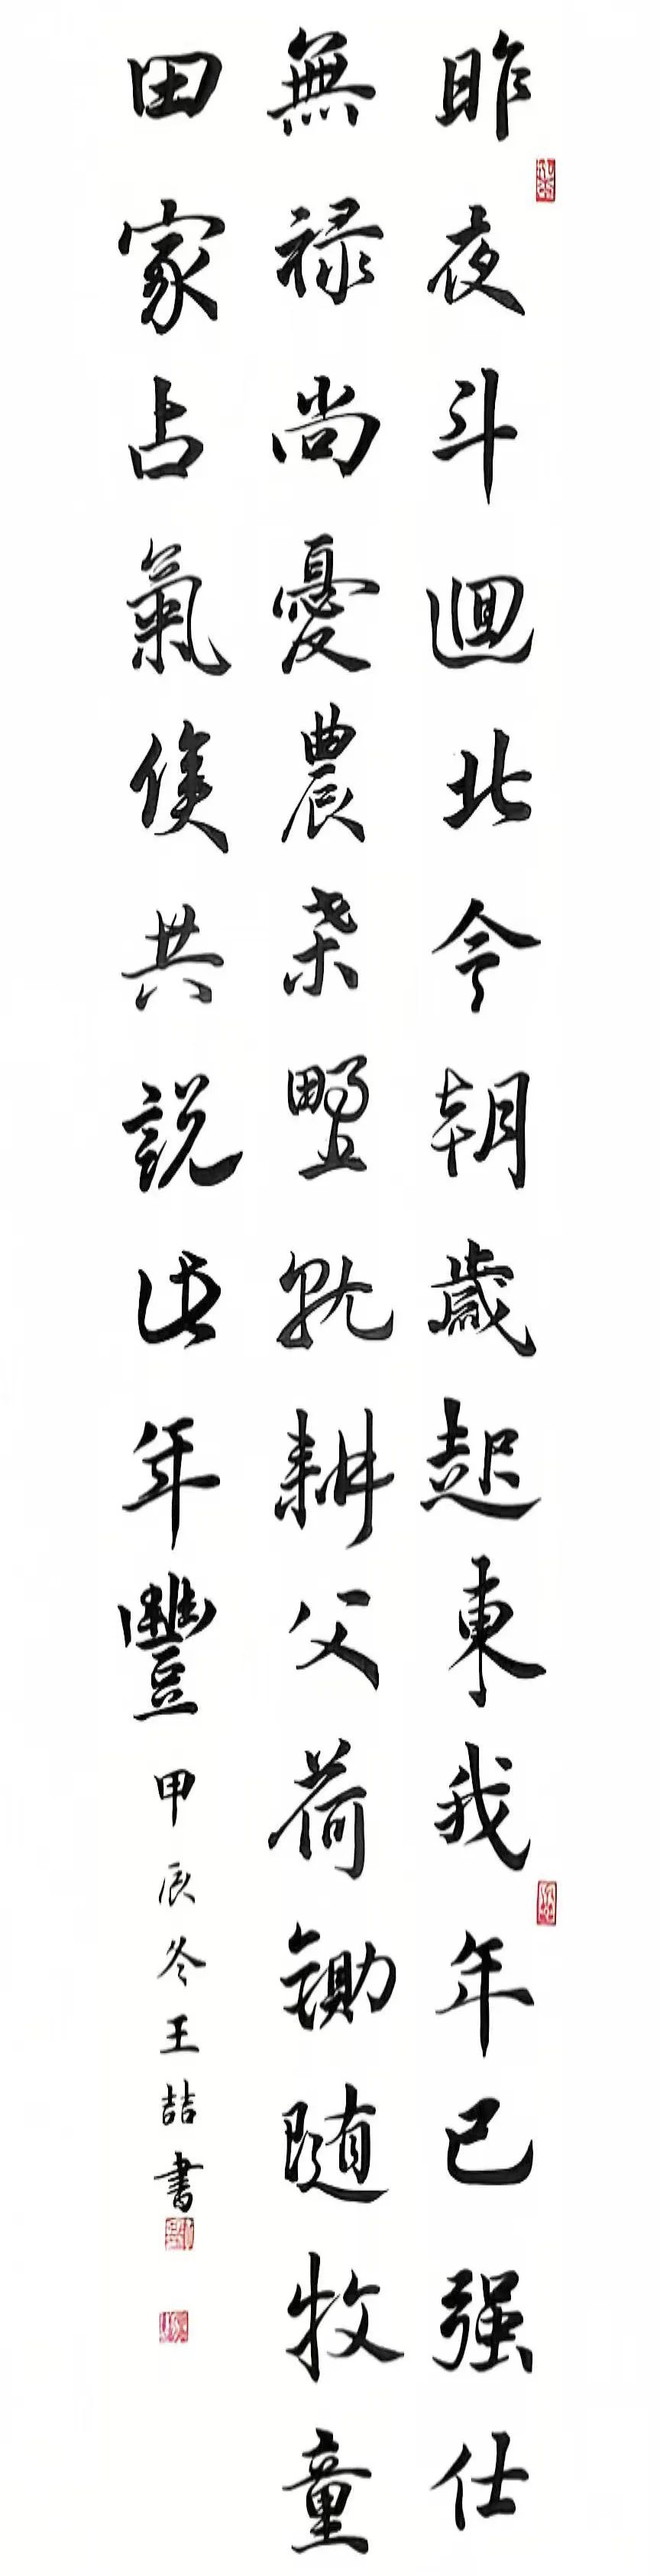 昨夜斗迴北今朝歲起東我年已强仕
無禄尚憂農桑野就耕父荷鋤随牧童
田家占氣候共説此年豐
甲辰冬王喆書